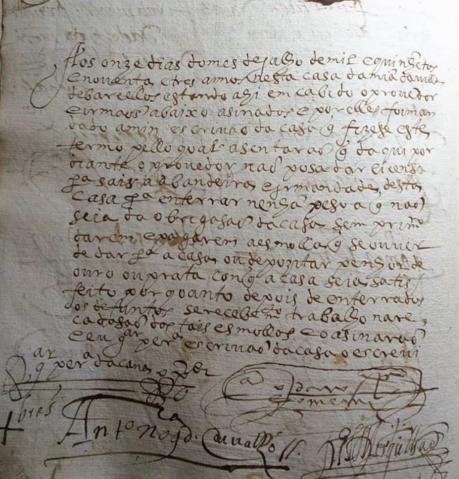 Aos onze dias do mes de julho de mil e quinhẽtos
e noventa e tres annos nesta casa da mĩa da villa
de barcellos estando ahi em cabido o provedor
e irmaos abaixo asinados e por elles foi man
dado a mim escrivão da casa q̃ fizese este
termo pello qual asentarão q̃ da qui por
diante o provedor não posa dar licensa
pª sair a bandeira e irmandade desta
casa pª enterrar nenhũa pesoa q̃ não
seia da obrigasão da casa sem primrº
darem e pagarem a esmolla q̃ se ouver
de dar pª a casa ou depozitar penhor de
ouro ou prata con q̃ a casa seia satis
feito por quanto depois de enterrados
os defuntos se recebe trabalho na re
cadasão dos tais esmollas e o asinarão
e eu perª escrivão da casa o escrevi
Antº
Carvalho